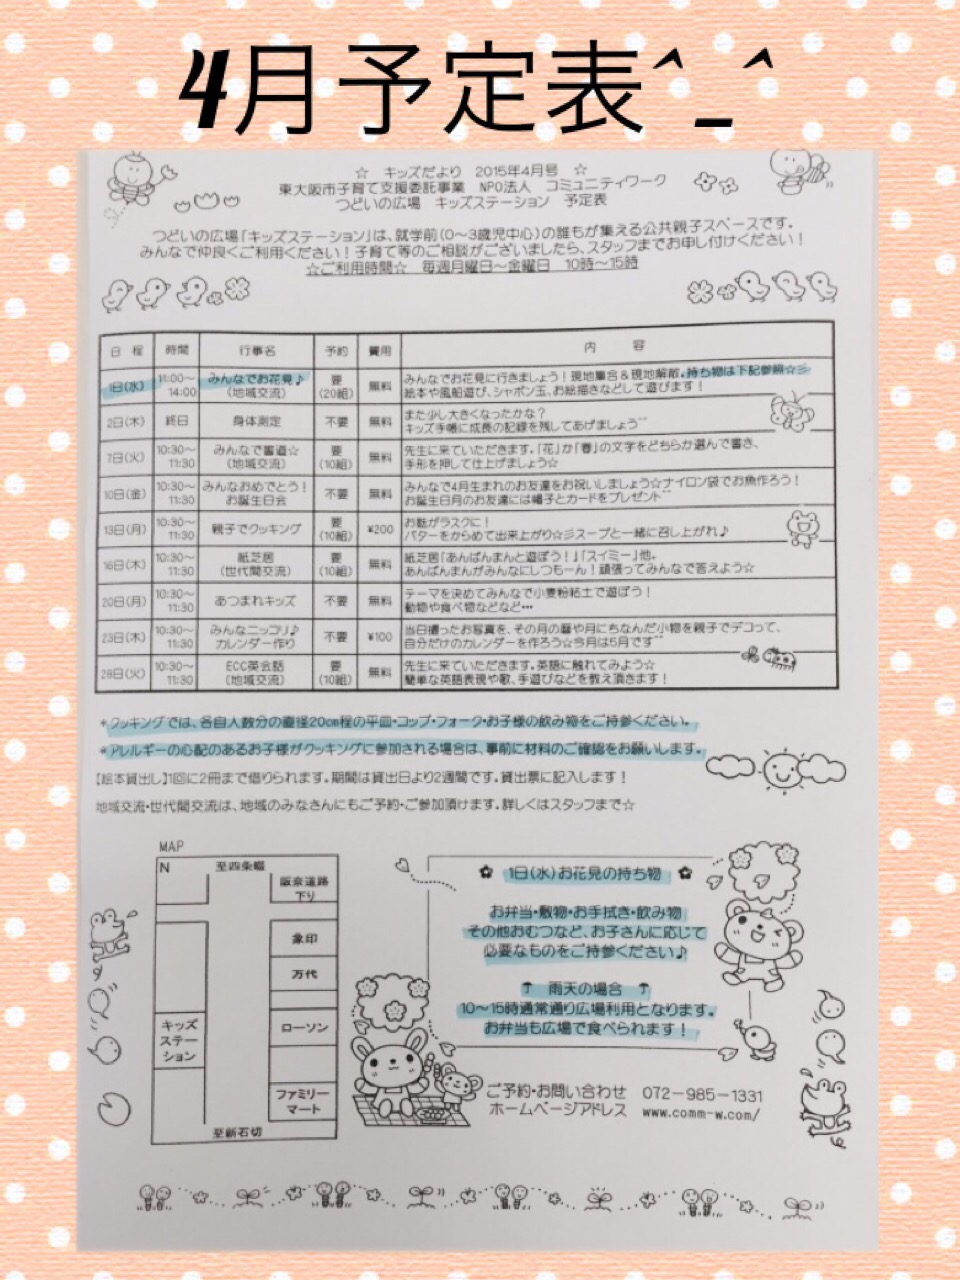 4月予定表^_^
☆ キッズだより 2015年4月号 ☆
東大阪市子育て支援委託事業 NPO法人 コミュニティワーク
つどいの広場 キッズステーション 予定表
つどいの広場「キッズステーション」は、就学前(0～3歳児中心)の誰もが集える公共親子スペースです。
みんなで仲良くご利用ください！子育て等のご相談がございましたら、スタッフまでお申し付けください！
☆ご利用時間☆ 毎週月曜日～金曜日 10時～15時
日程 時間 行事名 予約 費用 内容
1日(水) 11:00～14:00 みんなでお花見♪(地域交流) 要(20組) 無料 みんなでお花見に行きましょう！現地集合＆現地解散。持ち物は下記参照☆彡
絵本や風船遊び、シャボン玉、お絵描きなどして遊びます！
2日(木) 終日 身体測定 不要 無料 また少し大きくなったかな？
キッズ手帳に成長の記録を残してあげましょう^^
7日(火) 10:30～11:30 みんなで書道☆(地域交流) 要(10組) 無料 先生に来ていただきます。「花」か「春」の文字をどちらか選んで書き、
手形を押して仕上げましょう☆
10日(金) 10:30～11:30 みんなおめでとう！お誕生日会 不要 無料 みんなで4月生まれのお友達をお祝いしましょう☆ナイロン袋でお魚作ろう！
お誕生日月のお友達には帽子とカードをプレゼント^^
13日(月) 10:30～11:30 親子でクッキング 要(10組) ¥200 お麩がラスクに！
バターをからめて出来上がり☆彡スープと一緒に召し上がれ♪
16日(木) 10:30～11:30 紙芝居(世代間交流) 要(10組) 無料 紙芝居「あんぱんまんと遊ぼう！」「スイミー」他。
あんぱんまんがみんなにしつもーん！頑張ってみんなで答えよう☆
20日(月) 10:30～11:30 あつまれキッズ 不要 無料 テーマを決めてみんなで小麦粉粘土で遊ぼう！
動物や食べ物などなど…
23日(木) 10:30～11:30 みんなニッコリ♪カレンダー作り 不要 ¥100 当日撮ったお写真を、その月の暦や月にちなんだ小物を親子でデコって、
自分だけのカレンダーを作ろう☆今月は5月です^^
28日(火) 10:30～11:30 ECC英会話(地域交流) 要(10組) 無料 先生に来ていただきます。英語に触れてみよう☆
簡単な英語表現や歌、手遊びなどを教え頂きます！
＊クッキングでは、各自人数分の直径20cm程の平皿・コップ・フォーク・お子様の飲み物をご持参ください。
＊アレルギーの心配のあるお子様がクッキングに参加される場合は、事前に材料のご確認をお願いします。
【絵本貸出し】1回に2冊まで借りられます。期間は貸出日より2週間です。貸出票に記入します！
地域交流・世代間交流は、地域のみなさんにもご予約・ご参加頂けます。詳しくはスタッフまで☆
MAP
N
至四条畷
阪奈道路
下り
象印
万代
キッズ
ステー
ション
ローソン
ファミリー
マート
至新石切
1日(水)お花見の持ち物
お弁当・敷物・お手拭き・飲み物
その他おむつなど、お子さんに応じて
必要なものをご持参ください♪
☂ 雨天の場合 ☂
10～15時通常通り広場利用となります。
お弁当も広場で食べられます！
ご予約・お問い合わせ 072-985-1331
ホームページアドレス www.comm-w.com/